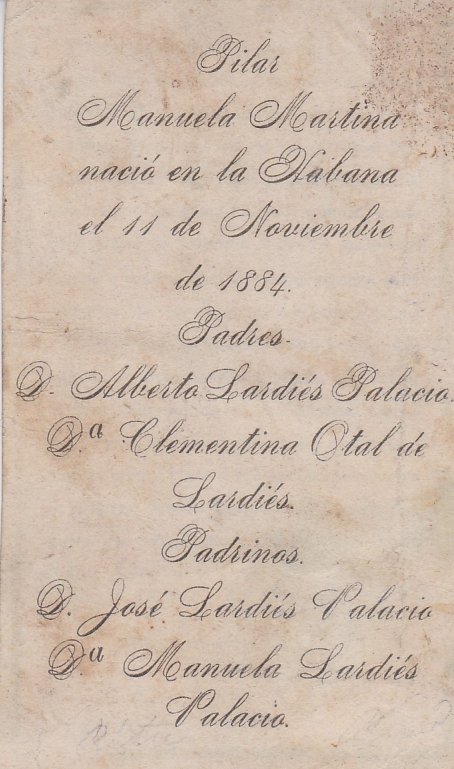 Pilar
Manuela Martina
nació en la Habana
el 11 de Noviembre
de 1884.
Padres.
D. Alberto Lardiés Palacio.
D.ª Clementina Otal de
Lardiés.
Padrinos.
D. José Lardiés Palacio
D.ª Manuela Lardiés
Palacio.